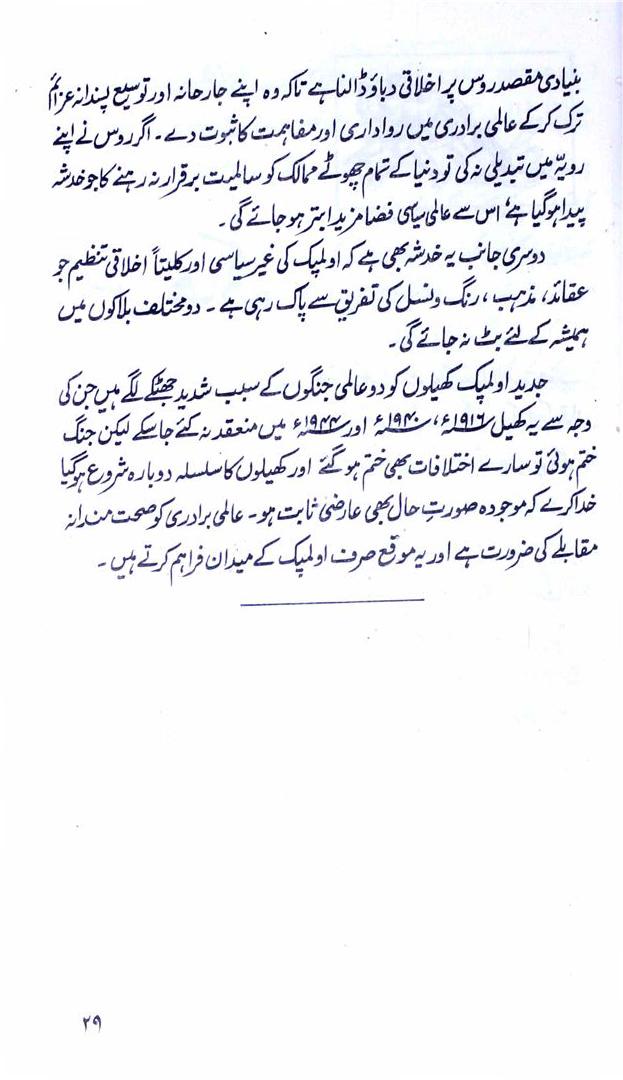 بنیادی مقصد روس پر اخلاقی دباؤ ڈالنا ہے تاکہ وہ اپنے جارحانہ اور توسیع پسندانہ عزائم
ترک کر کے عالمی برادری میں رواداری اور مفاہمت کا ثبوت دے۔ اگر روس نے اپنے
رویّہ میں تبدیلی نہ کی تو دنیا کے تمام چھوٹے ممالک کو سالمیت برقرار نہ رہنے کا جو خدشہ
پیدا ہو گیا ہے، اس سے عالمی سیاسی فضا مزید ابتر ہو جائے گی۔
دوسری جانب یہ خدشہ بھی ہے کہ اولمپک کی غیر سیاسی اور کلیتاً اخلاقی تنظیم جو
عقائد، مذہب، رنگ و نسل کی تفریق سے پاک رہی ہے۔ دو مختلف بلاکوں میں
ہمیشہ کے لئے بٹ نہ جائے گی۔
جدید اولمپک کھیلوں کو دو عالمی جنگوں کے سبب شدید جھٹکے لگے ہیں جن کی
وجہ سے یہ کھیل ۱۹۱۶ء، ۱۹۴۰ء اور ۱۹۴۴ء میں منعقد نہ کئے جا سکے لیکن جنگ
ختم ہوئی تو سارے اختلافات بھی ختم ہو گئے اور کھیلوں کا سلسلہ دوبارہ شروع ہو گیا
خدا کرے کہ موجودہ صورتِ حال بھی عارضی ثابت ہو۔ عالمی برادری کو صحت مندانہ
مقابلے کی ضرورت ہے اور یہ موقع صرف اولمپک کے میدان فراہم کرتے ہیں۔
۲۹